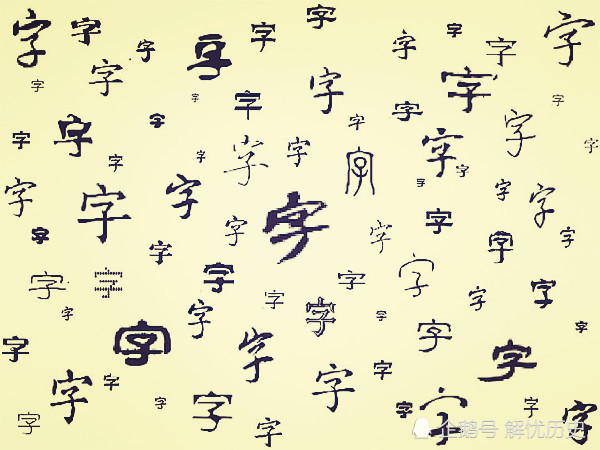 字 字 字 字 字 字 字 字 字 字
字 字 字 字 字 字 字 字
字 字 字 字 字 字 字 字 字 字 字 字 字
字 字 字 字 字 字 字 字 字 字 字 字 字 字
字 字 字 字 字 字 字 字 字 字 字 字 字 字
字 字 字 字
字 字 字 字 字 字 字 字 字 字
字 字
企鹅号 解忧历史